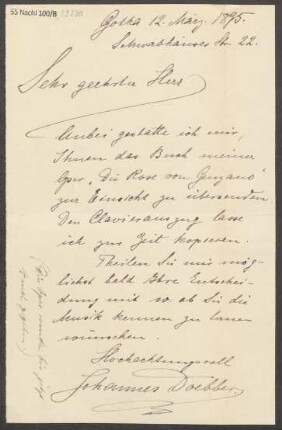 SS Nachl 100/B
Gotha 12. März. 1895.
Schwabhäuser Str. 22.
Sehr geehrter Herr
Anbei gestatte ich mir,
Ihnen das Buch meiner
Oper „Die Rose von Genzano"
zur Einsicht zu übersenden.
Den Clavierauszug lasse
ich zur Zeit kopieren.
Theilen Sie mir mög-
lichst bald Ihre Entschei-
dung mit u. ob Sie die
Musik kennen zu lernen
wünschen.
Hochachtungsvoll
Johannes Doebber.
(Die Oper wurde bis jetzt